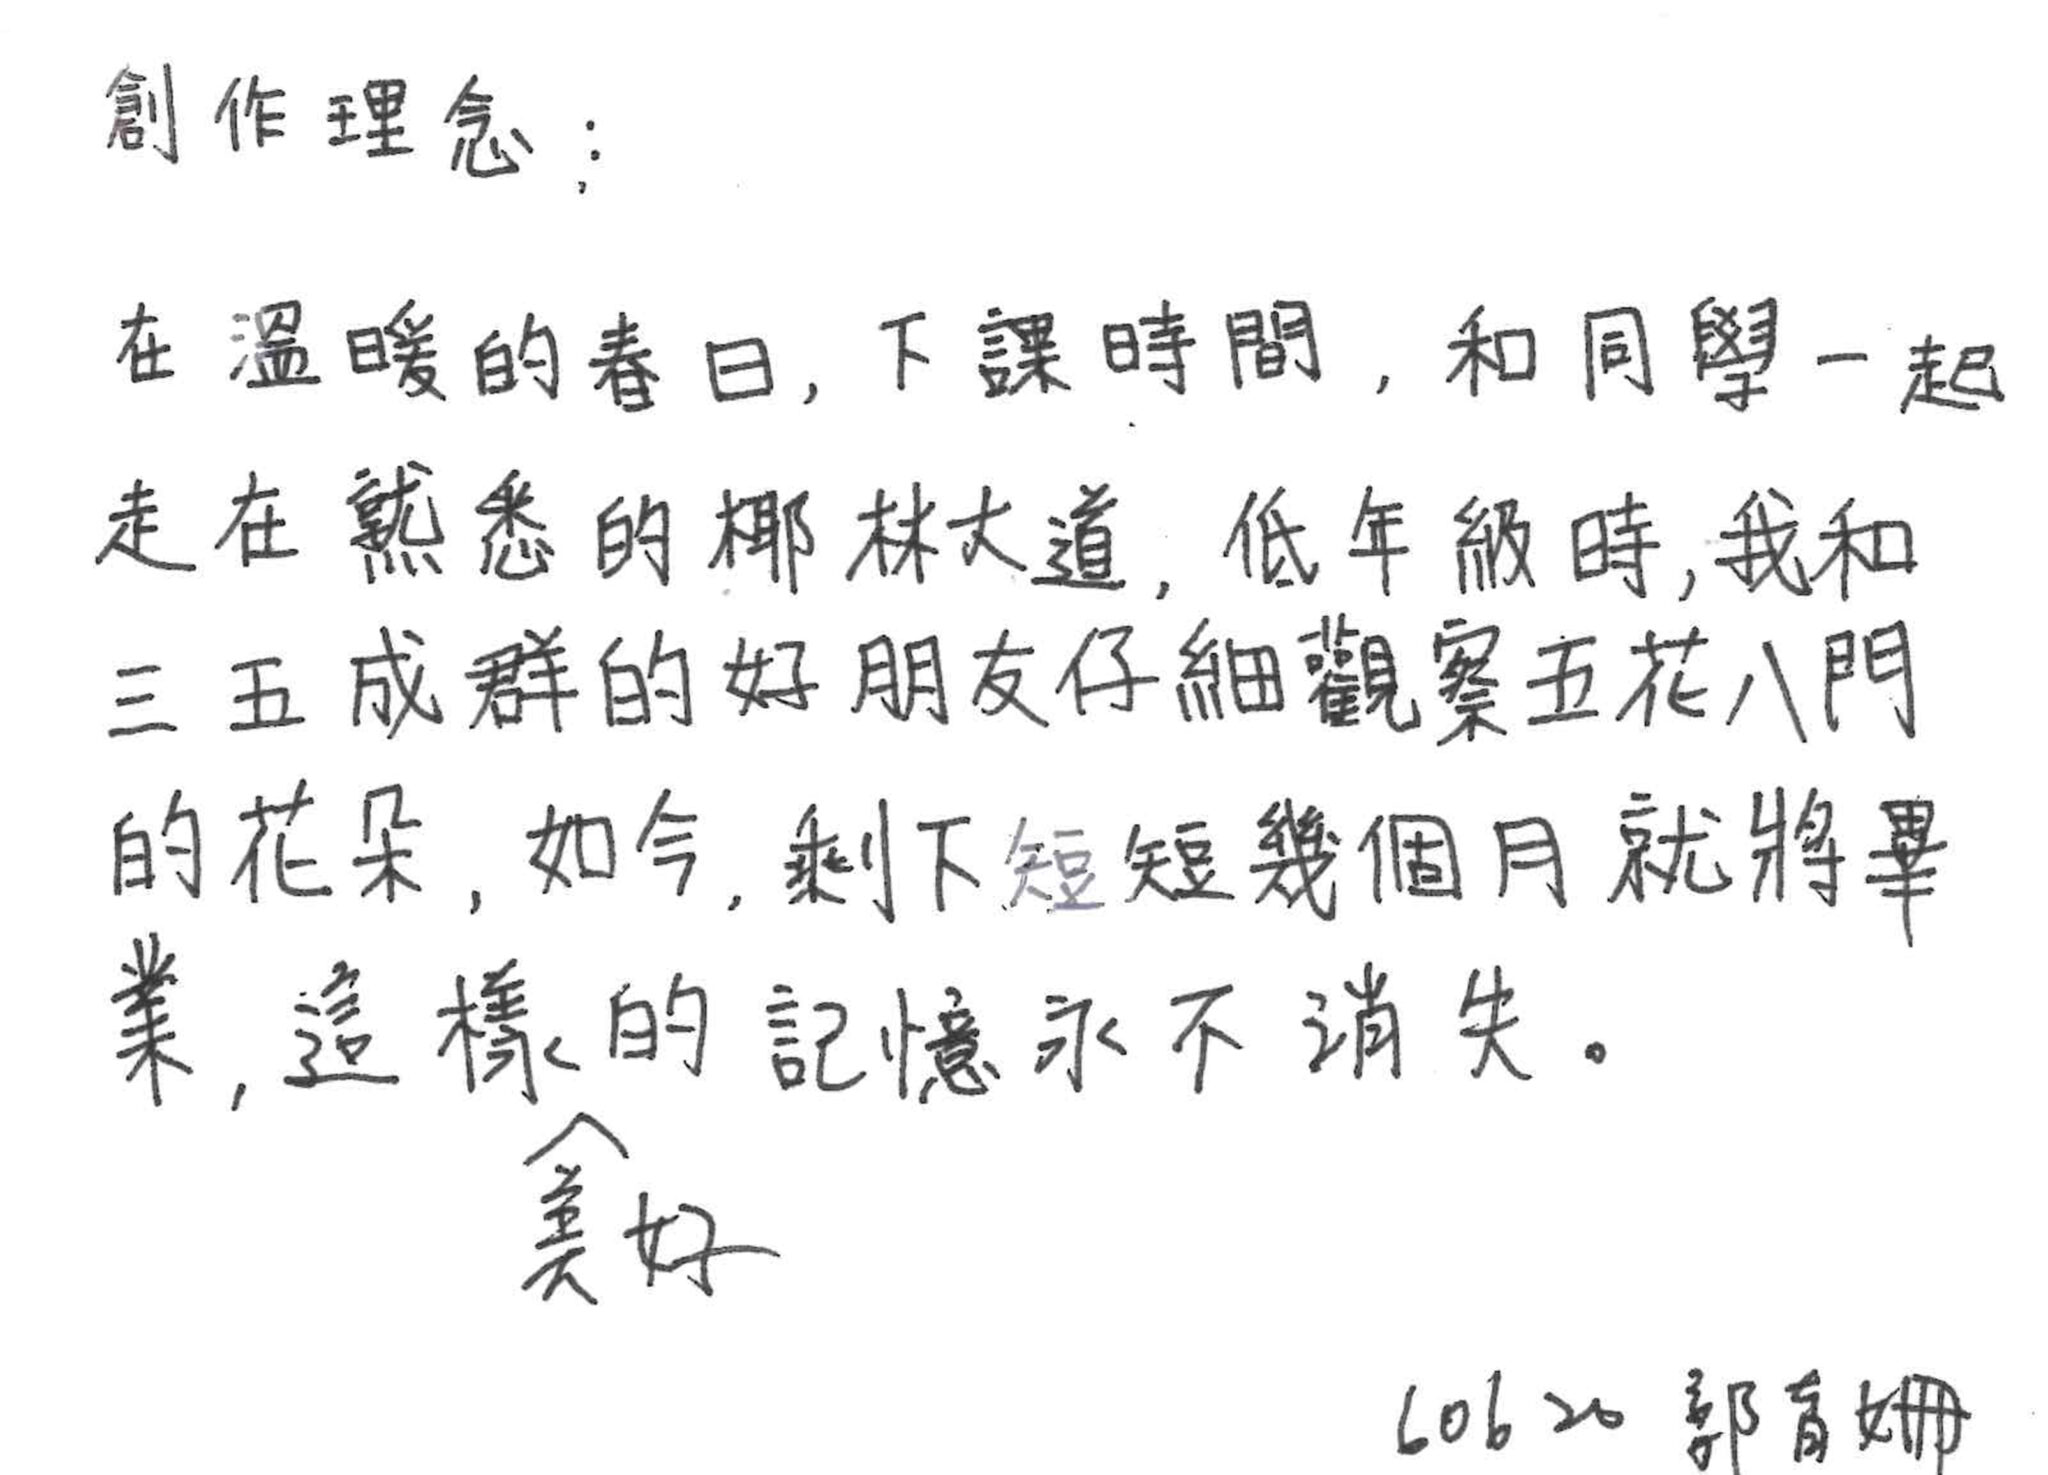 創作理念：
在溫暖的春日，下課時間，和同學一起
走在熟悉的椰林大道，低年級時，我和
三五成群的好朋友仔細觀察五花八門
的花朵，如今，剩下短短幾個月就將畢
業，這樣的記憶永不消失。
美好
60620 郭育姍